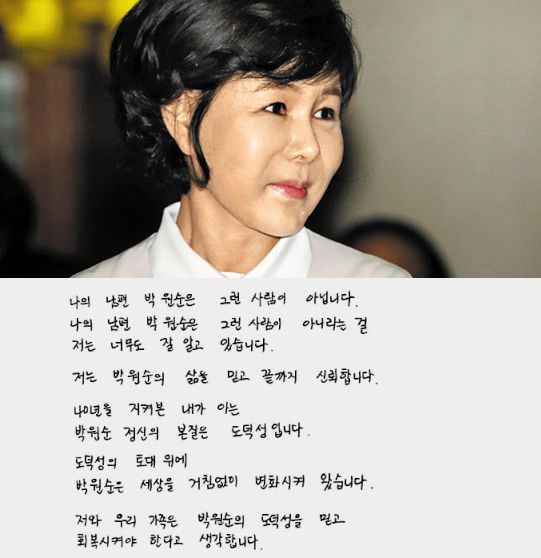 나의 남편 박원순은 그런 사람이 아닙니다.
나의 남편 박원순은 그런 사람이 아니라는 걸
저는 너무도 잘 알고 있습니다.
저는 박원순의 삶을 믿고 끝까지 신뢰합니다.
40년을 지켜본 내가 아는
박원순 정신의 본질은 도덕성입니다.
도덕성의 토대 위에
박원순은 세상을 거침없이 변화시켜 왔습니다.
저와 우리 가족은 박원순의 도덕성을 믿고
회복시켜야 한다고 생각합니다.